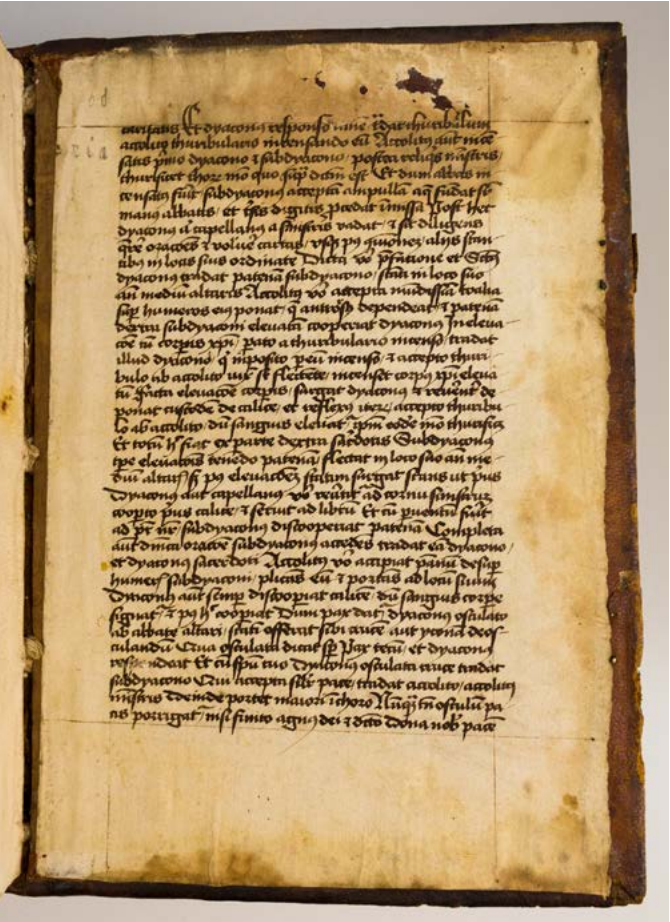 caritatis Et dyaconus responso amē tradat thuribulum
accolito thuribulario incensando eū Accolitus aūt incē
satis pͥmo dyacono ⁊ subdyacono, postea reliqͥs mīstris
thurificet choro mō quo supͣ dictū est Et dum abbas in
censatus fuit subdyaconus accepta ampulla aq̄ fūdat sr̄
manus abbatis, et tͥbs digitis ꝓcedat ī missa Post hec
dyaconus ⁊ capellanus a sinistris vadat, ⁊ sit diligens
qͬre orac̄oes ⁊ volue' cartas, aliis stan
tibus in locis suis ordinate Dicta vō p̄fatione et Sctūs
dyaconus tradat patenā subdyacono, stāti in loco suo
an̄ mediū altaris Accolitus vō accepta mūdissīa toalia
sup̱ humeros eius ponat, q̄ dependeat, ⁊ patenā
dextra subdyaconi elevatā cooperiat dyaconus In eleva
cōe tn̄ corpis xp̄i, pato a thuribulario incenso, tradat
illud dyacono, q̄ imposito incenso, ⁊ accepto thuri
bulo ab accolito flectēte, incenset corpus xp̄i eleva
tū ffacta elevacōe corpis, surgat dyaconus ⁊ revent' de
ponat custodē de calice, et reflexus itex, accepto thuribu
lo ab accolito, dū sanguis elevat', ip̄m eodē mō thurificꝫ
Et totū h̄ fiat ex parte dextra sac̄dotis Subdyaconus
tp̄e elevatōis tenēdo patenā, flectat in loco suo an̄ me
diū altaris, ⁊ pͧ elevacōeꝫ statim surgat stans ut pͥus
Dyaconus aūt capellanus vō ad cornu sinistrū
coopto pͥus calice, ⁊ serviat ad librū Et cū ꝑventū fuit
ad pr̄ nr̄ subdyaconus discooperiat patenā Completa
aūt dn̄ica orac̄oe subdyaconus accedēs tradat eā dyacono,
et dyaconus sacerdoti Accolitus vō accipiat pannū desup̱
humeris subdyaconi, plicās eū ⁊ portās ad locū suum
Dyaconus aūt semp̱ discoopiat calicē, dū sanguis corpe
signat', ⁊ pͧ h̄ coopiat Dum pax dat', dyaconus osculato
ab abbate altari, statī offerat sibi crucē aūt yconā deos
culandū Qua osculata dicat sp̱ Pax tecū, et dyaconus
respondeat Et cū spū tuo Dyaconus osculata cruce tradat
subdyacono Qui accepta silr̄ pace, tradat accolito, accolitus
mīstris Deinde portet maiori ī choro Nūqͣ tn̄ osculū pa
cis porrigat, nisi finito agnus dei ⁊ dc̄to Dona nob̄ pacē